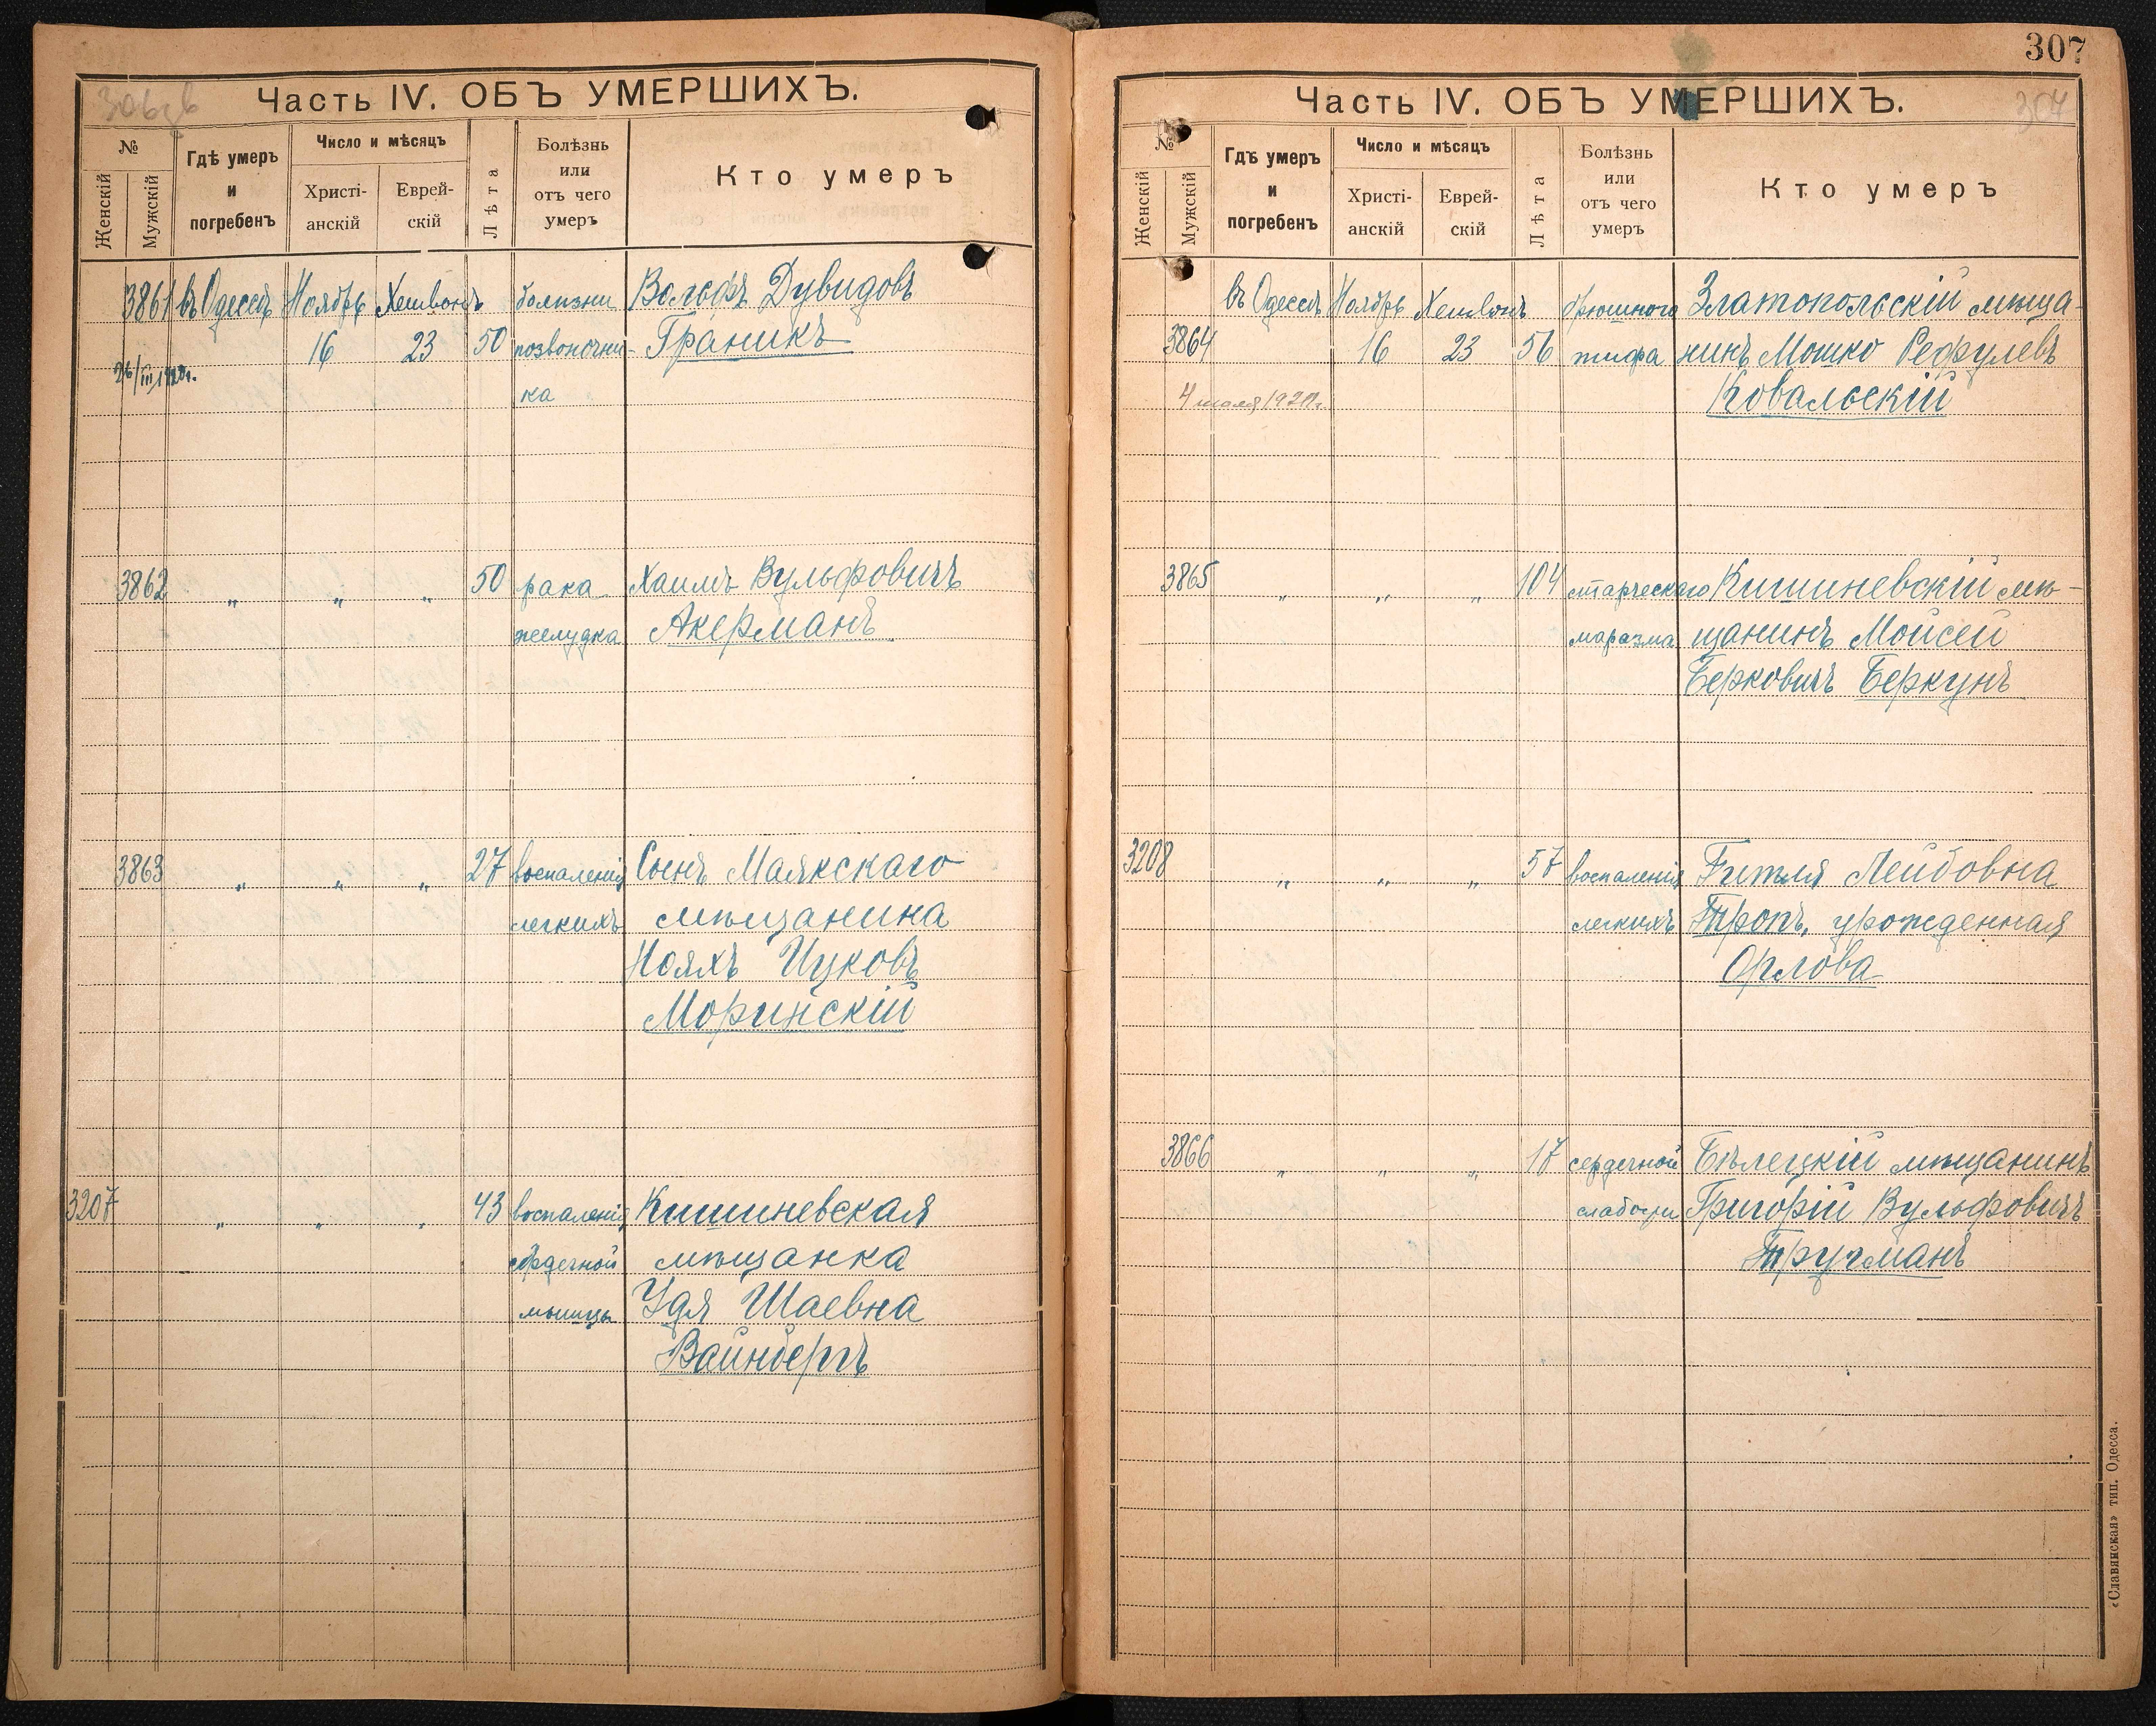 306 об
Часть IV. ОБЪ УМЕРШИХЪ.
№
Женскій
Мужскій
Гдѣ умеръ
и
погребенъ
Число и мѣсяцъ
Христі-
анскій
Еврей-
скій
Лѣта
Болѣзнь
или
отъ чего
умеръ
Кто умеръ
3861 въ Одессѣ Ноябрь Хешвонъ болѣзни Вольфъ Дувидовъ
16 23 50 позвоночни- Граникъ
26/III 1920г.
ка
3862 „ „ „ 50 рака Хаимъ Вульфовичъ
желудка Акерманъ
3863 „ „ „ 27 воспаленія Сынъ Маякскаго
легкихъ мѣщанина
Нояхъ Ицковъ
Моринскій
3207 „ „ „ 43 воспаленія Кишиневская
сердечной мѣщанка
мышцы Удя Шаевна
Вайнбергъ
307
Часть IV. ОБЪ УМЕРШИХЪ.
307
№
Женскій
Мужскій
Гдѣ умеръ
и
погребенъ
Число и мѣсяцъ
Христі-
анскій
Еврей-
скій
Лѣта
Болѣзнь
или
отъ чего
умеръ
Кто умеръ
въ Одессѣ Ноябрь Хешвонъ брюшного Златопольскій мѣща-
3864 16 23 56 тифа нинъ Мошко Рефулевъ
Ковальскій
3865 „ „ „ 104 старческаго Кишиневскій мѣ-
маразма щанинъ Мойсей
Берковичъ Беркунъ
3208 „ „ „ 57 воспаленія Гитля Лейбовна
легкихъ Тропъ, урожденная
Орлова
3866 „ „ „ 17 сердечной Бѣлецкій мѣщанинъ
слабости Григорій Вульфовичъ
Тручманъ
«Славянская» тип. Одесса.